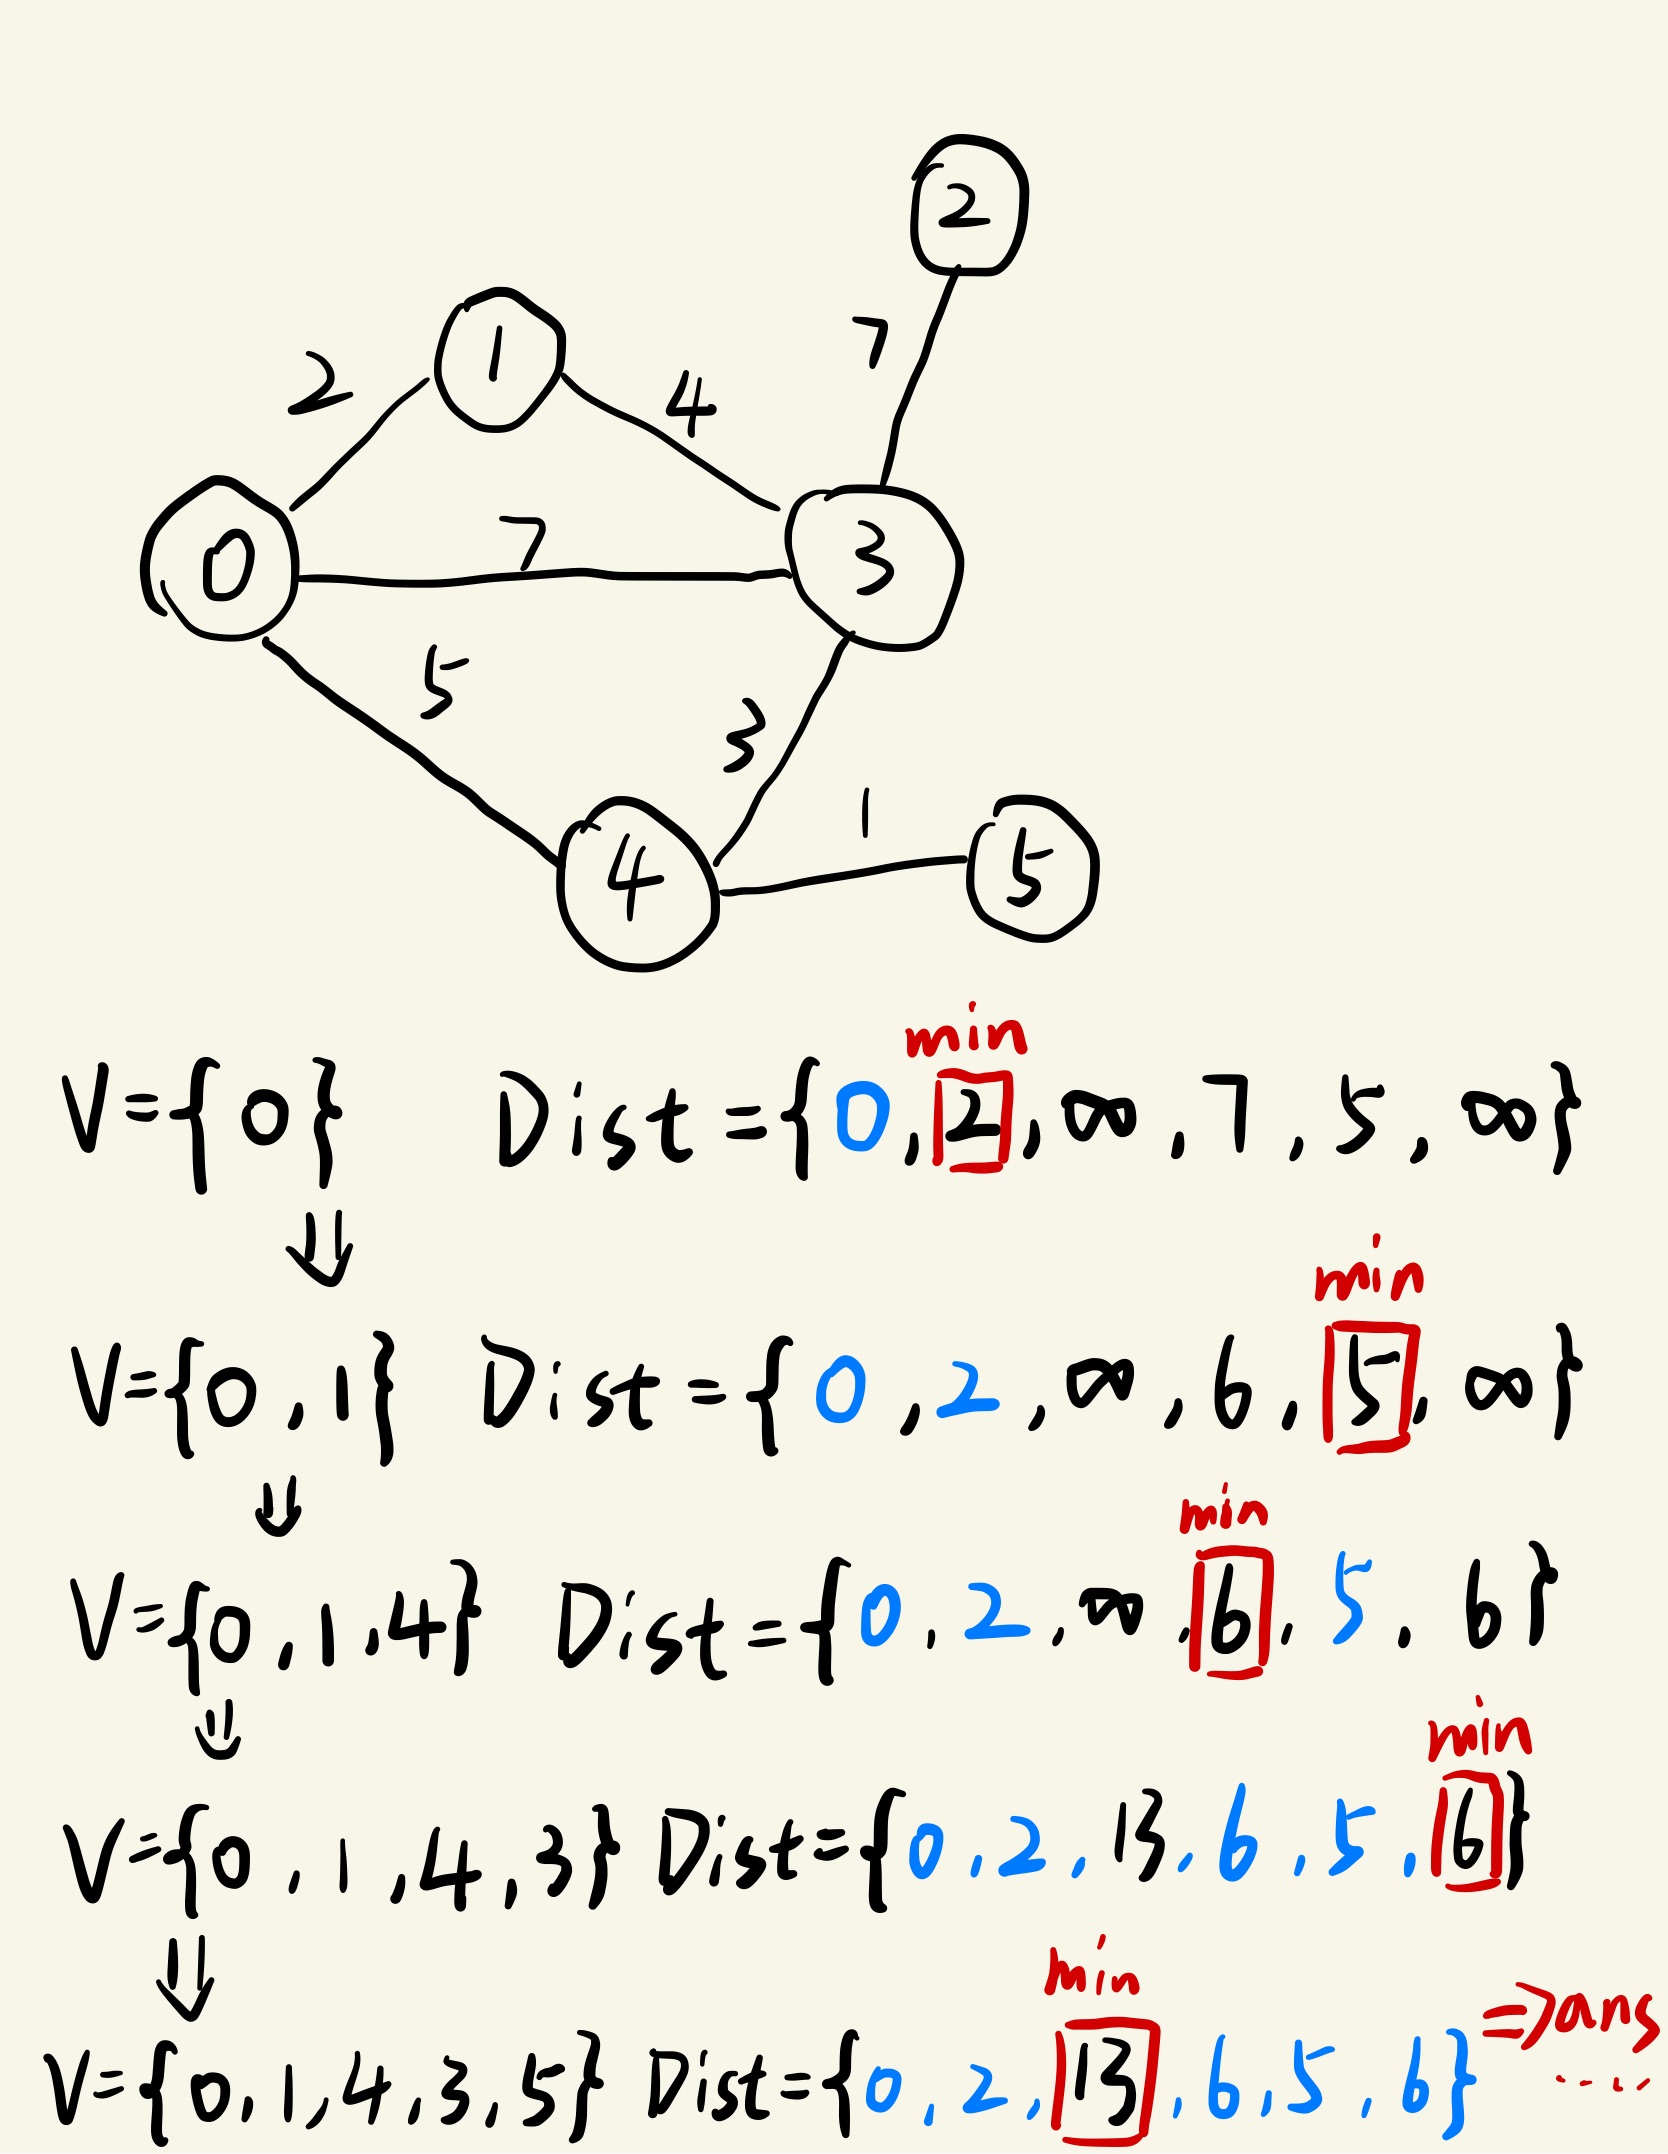 2
1
7
2
4
0
7
3
5
3
1
4
5
min
V={0} Dist={0,2,∞,7,5,∞}
⇓
min
V={0,1} Dist={0,2,∞,6,5,∞}
⇓
min
V={0,1,4} Dist={0,2,∞,6,5,6}
⇓
min
V={0,1,4,3} Dist={0,2,13,6,5,6}
⇓
min
V={0,1,4,3,5} Dist={0,2,13,6,5,6} ⇒ans
.....